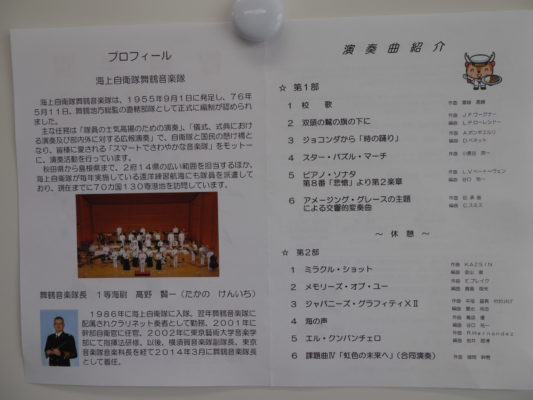 プロフィール
海上自衛隊舞鶴音楽隊
海上自衛隊舞鶴音楽隊は、1955年9月1日に発足し、76年
5月11日、舞鶴地方総監の直轄部隊として正式に編制が認められ
ました。
主な任務は「隊員の士気高揚のための演奏」、「儀式、式典におけ
る演奏及び部内外に対する広報演奏」で、自衛隊と国民の懸け橋と
なり、皆様に愛される「スマートでさわやかな音楽隊」をモットー
に、演奏活動を行っています。
秋田県から島根県まで、2府14県の広い範囲を担当するほか、
海上自衛隊が毎年実施している遠洋練習航海にも隊員を派遣して
おり、現在までに70カ国130寄港地を訪問しています。
舞鶴音楽隊長 1等海尉 髙野 賢一(たかの けんいち)
1986年に海上自衛隊に入隊。翌年舞鶴音楽隊に
配属されクラリネット奏者として勤務。2001年に
幹部自衛官に任官。2002年に東京藝術大学音楽学
部にて指揮法研修。以後、横須賀音楽隊副隊長、東京
音楽隊音楽科長を経て2014年3月に舞鶴音楽隊長
として着任。
演奏曲紹介
☆ 第1部
1 校 歌
2 双頭の鷲の旗の下に
作曲 J.F.ワーグナー
3 ジョコンダから「時の踊り」
作曲 A.ポンキエルリ
編曲 D.ベネット
4 スター・パズル・マーチ
5 ピアノ・ソナタ
第8番「悲愴」より第2楽章
作曲 L.V.ベートーヴェン
6 アメージング・グレースの主題
による交響的変奏曲
～ 休 憩 ～
☆ 第2部
1 ミラクル・ショット
2 メモリーズ・オブ・ユー
作曲 E.ブレイク
3 ジャパニーズ・グラフィティⅩⅡ
4 海の声
5 エル・クンバンチェロ
作曲 R.Hernandez
6 課題曲Ⅳ「虹色の未来へ」(合同演奏)